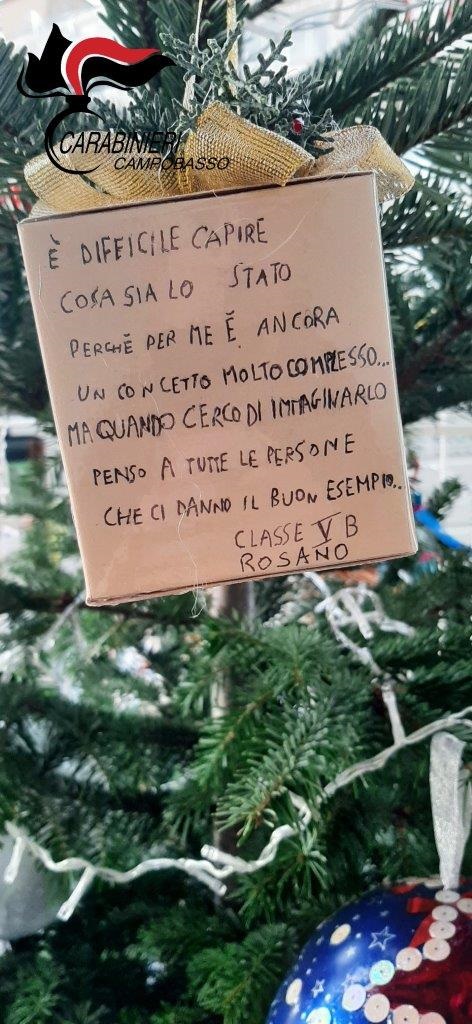 CARABINIERI
CAMPOBASSO
È DIFFICILE CAPIRE
COSA SIA LO STATO
PERCHÈ PER ME È ANCORA
UN CONCETTO MOLTO COMPLESSO...
MA QUANDO CERCO DI IMMAGINARLO
PENSO A TUTTE LE PERSONE
CHE CI DANNO IL BUON ESEMPIO..
CLASSE V B
ROSANO